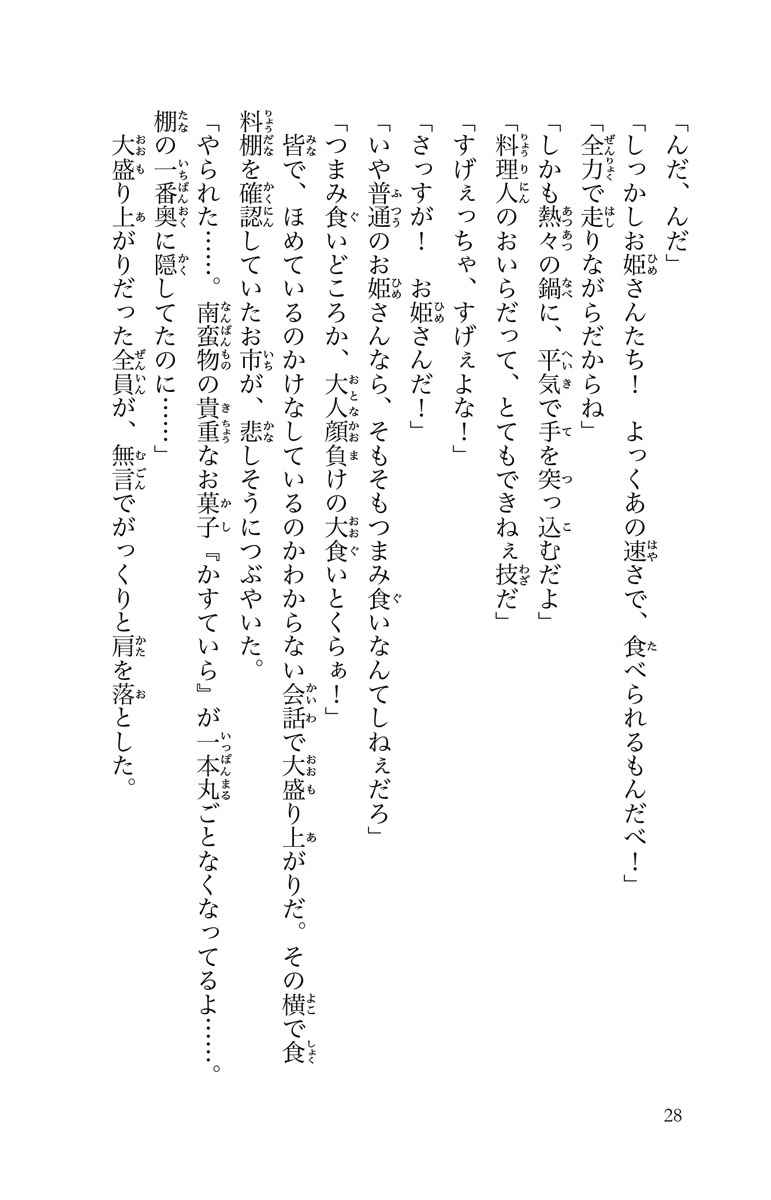 「んだ、んだ」
「しっかしお姫さんたち！　よっくあの速さで、食べられるもんだべ！」
「全力で走りながらだからね」
「しかも熱々の鍋に、平気で手を突っ込むだよ」
「料理人のおいらだって、とてもできねぇ技だ」
「すげぇっちゃ、すげぇよな！」
「さっすが！　お姫さんだ！」
「いや普通のお姫さんなら、そもそもつまみ食いなんてしねぇだろ」
「つまみ食いどころか、大人顔負けの大食いとくらぁ！」
　皆で、ほめているのかけなしているのかわからない会話で大盛り上がりだ。その横で食
料棚を確認していたお市が、悲しそうにつぶやいた。
「やられた……。南蛮物の貴重なお菓子『かすていら』が一本丸ごとなくなってるよ……。
棚の一番奥に隠してたのに……」
　大盛り上がりだった全員が、無言でがっくりと肩を落とした。
28